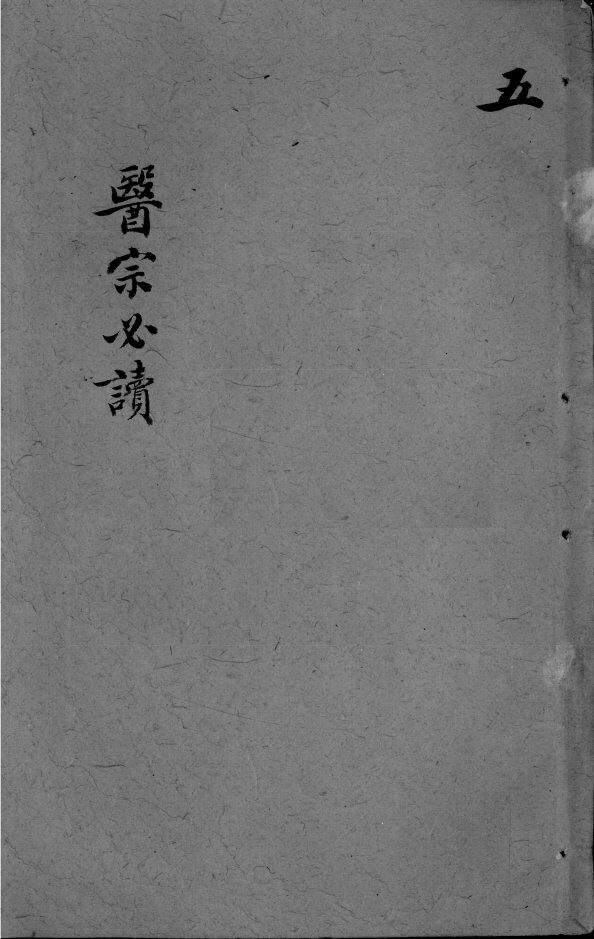 五
醫宗必讀